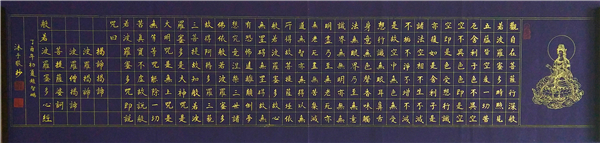 觀自在菩薩行深般
若波羅蜜多時照見
五蘊皆空度一切苦
厄舍利子色不異空
空不異色色即是空
空即是色受想行識
亦復如是舍利子是
諸法空相不生不滅
不垢不淨不增不減
是故空中無色無受
想行識無眼耳鼻舌
身意無色聲香味觸
法無眼界乃至無意
識界無無明亦無無
明盡乃至無老死亦
無老死盡無苦集滅
道無智亦無得以無
所得故菩提薩埵依
般若波羅蜜多故心
無罣礙無罣礙故無
有恐怖遠離顛倒夢
想究竟涅槃三世諸
佛依般若波羅蜜多
故得阿耨多羅三藐
三菩提故知般若波
羅蜜多是大神咒是
大明咒是無上咒是
無等等咒能除一切
苦真實不虛故說般
若波羅蜜多咒即說
咒曰
揭諦揭諦
波羅揭諦
波羅僧揭諦
菩提薩婆訶
般若波羅蜜多心經
丁酉年初夏
沐手敬抄